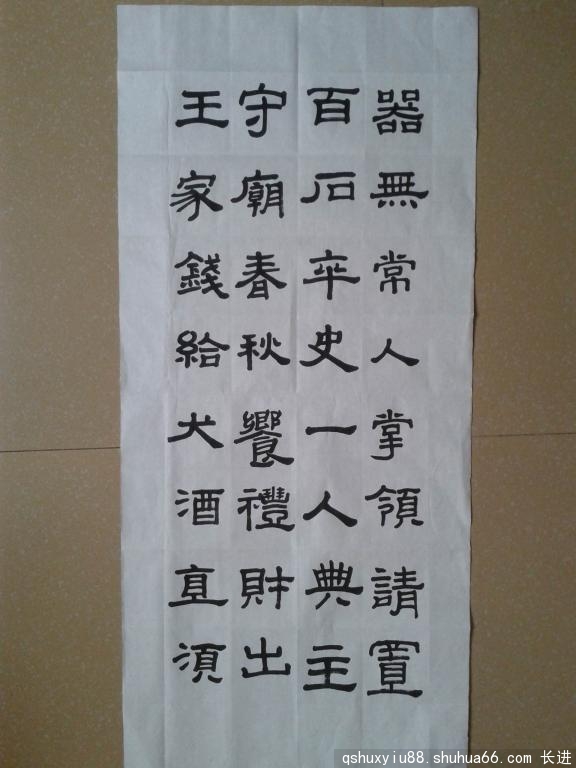 器無常人掌領請置
百石卒史一人典主
守廟春秋饗禮財出
王家錢給犬酒直須
qshuxyiu88.shuhua66.com 长进